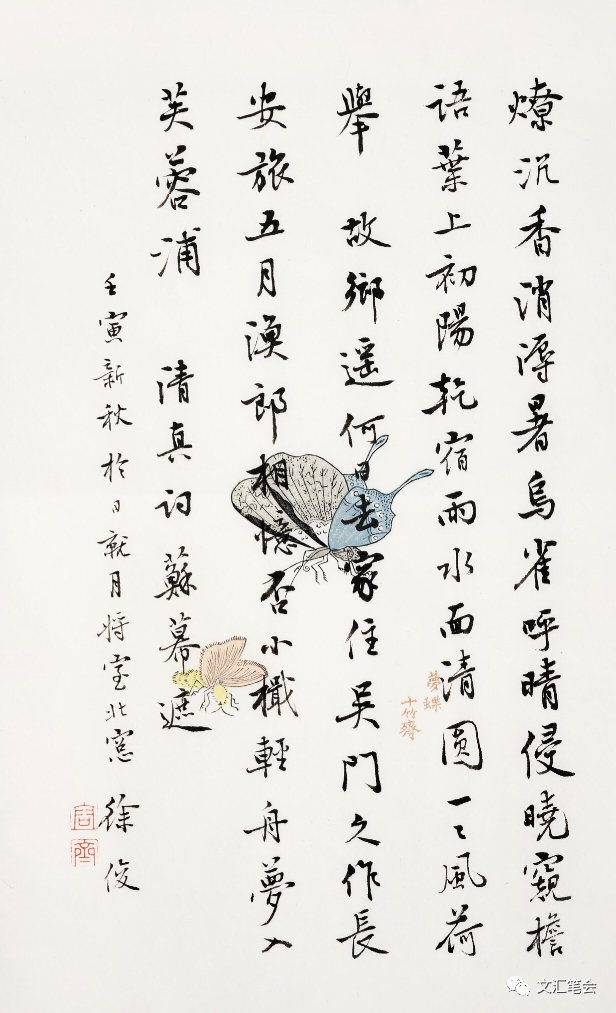 燎沉香消溽暑烏雀呼晴侵曉窺檐
語葉上初陽乾宿雨水面清圓一〻風荷
舉　故鄉遥何日去家住吴門久作長
安旅五月漁郎相憶否小檝輕舟夢入
芙蓉浦　清真詞蘇幕遮
壬寅新秋於日就月將室北窓　徐俊
夢蝶
十竹齋
文汇笔会